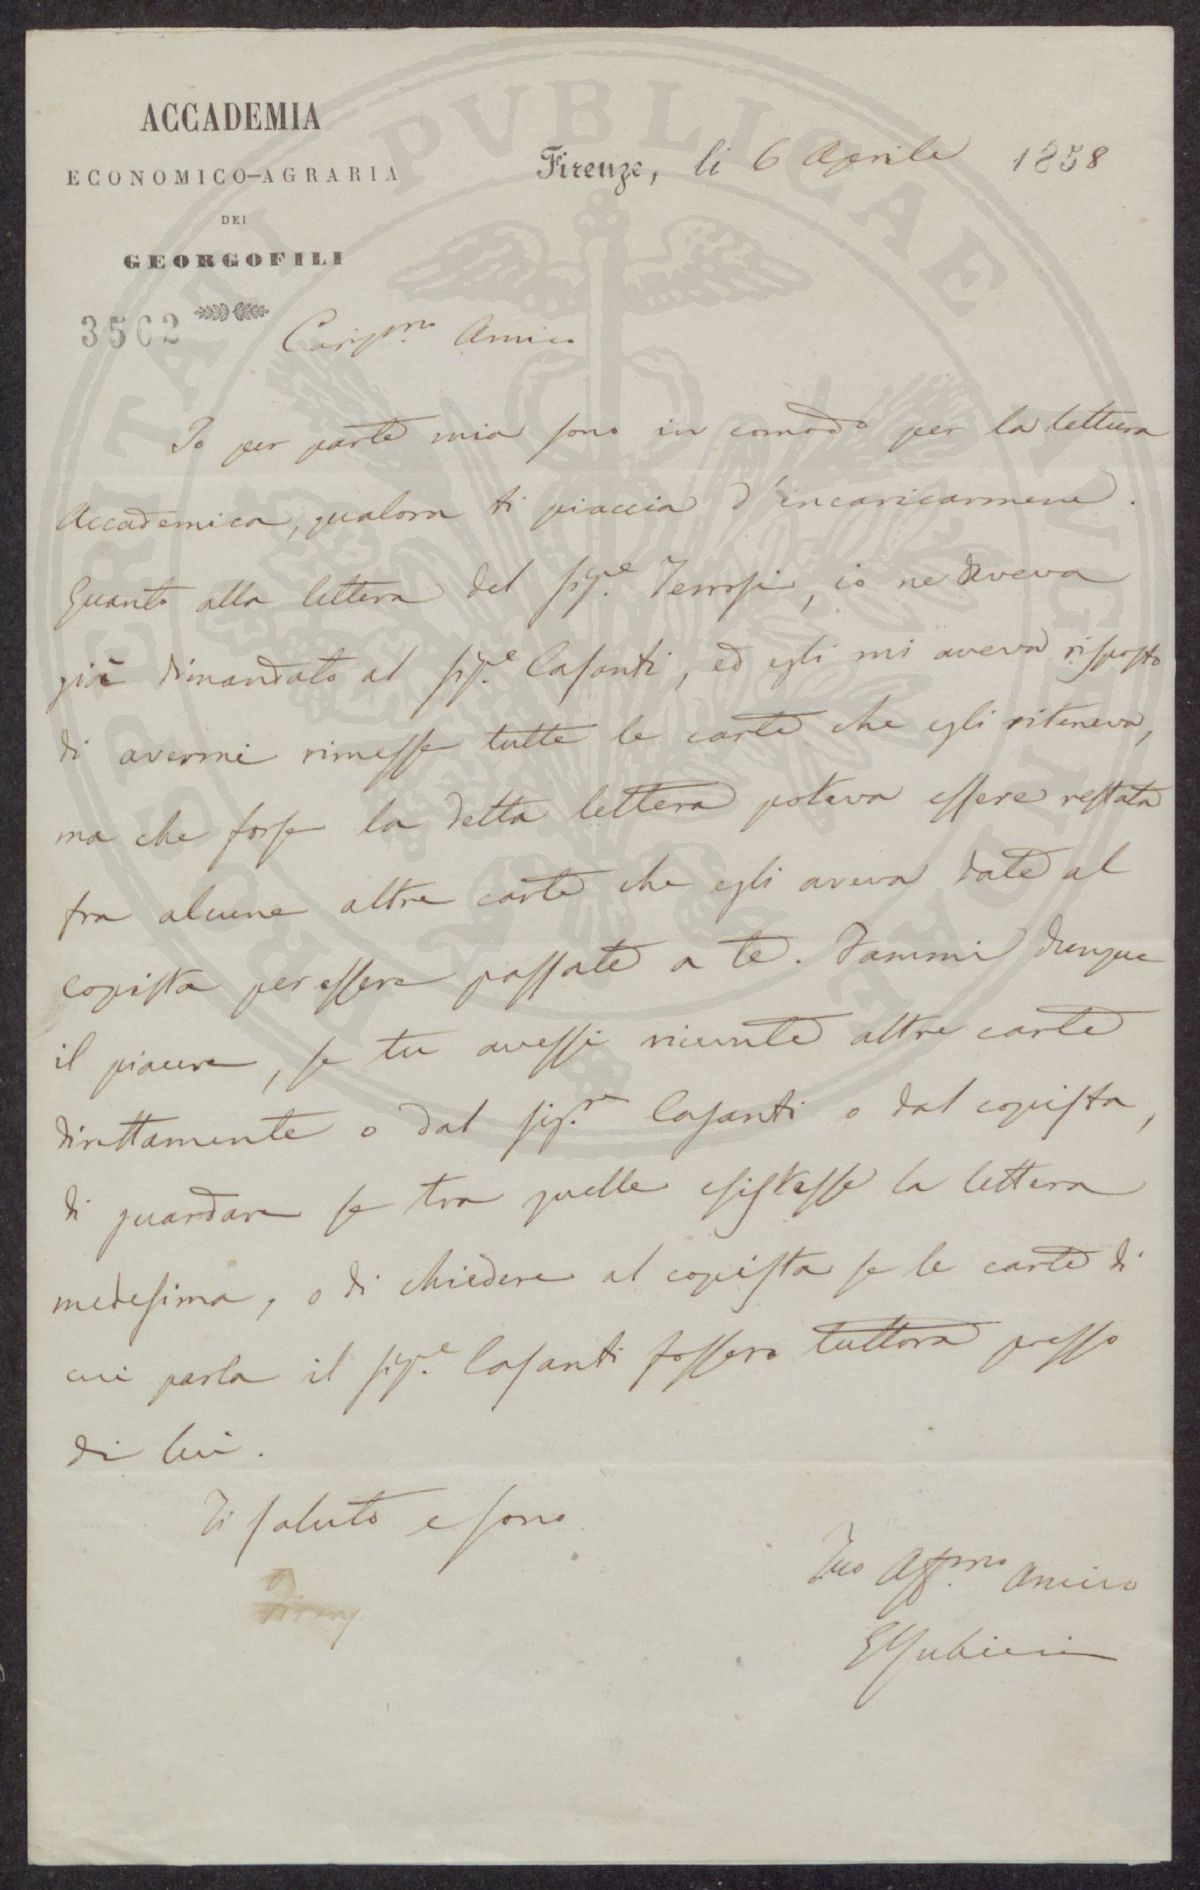 ACCADEMIA
ECONOMICO-AGRARIA
DEI
GEORGOFILI
3562
Firenze, li 6 Aprile 1858
Cariss.mo Amico
Io per parte mia sono in comodo per la lettura
Accademica, qualora ti piaccia d'incaricarmene.
Quanto alla lettera del Sig.e Terrosi, io ne aveva
già dimandato al Sig.e Casanti, ed egli mi aveva risposto
di avermi rimesse tutte le carte che egli riteneva,
ma che forse la detta lettera poteva essere restata
fra alcune altre carte che egli aveva date al
copista per essere passate a te. Fammi dunque
il piacere, se tu avessi ricevute altre carte
direttamente o dal Sig.re Casanti o dal copista,
di guardare se tra quelle esistesse la lettera
medesima, o di chiedere al copista se le carte di
cui parla il Sig.e Casanti fossero tuttora presso
di lui.
Ti saluto e sono
Tuo Aff.mo Amico